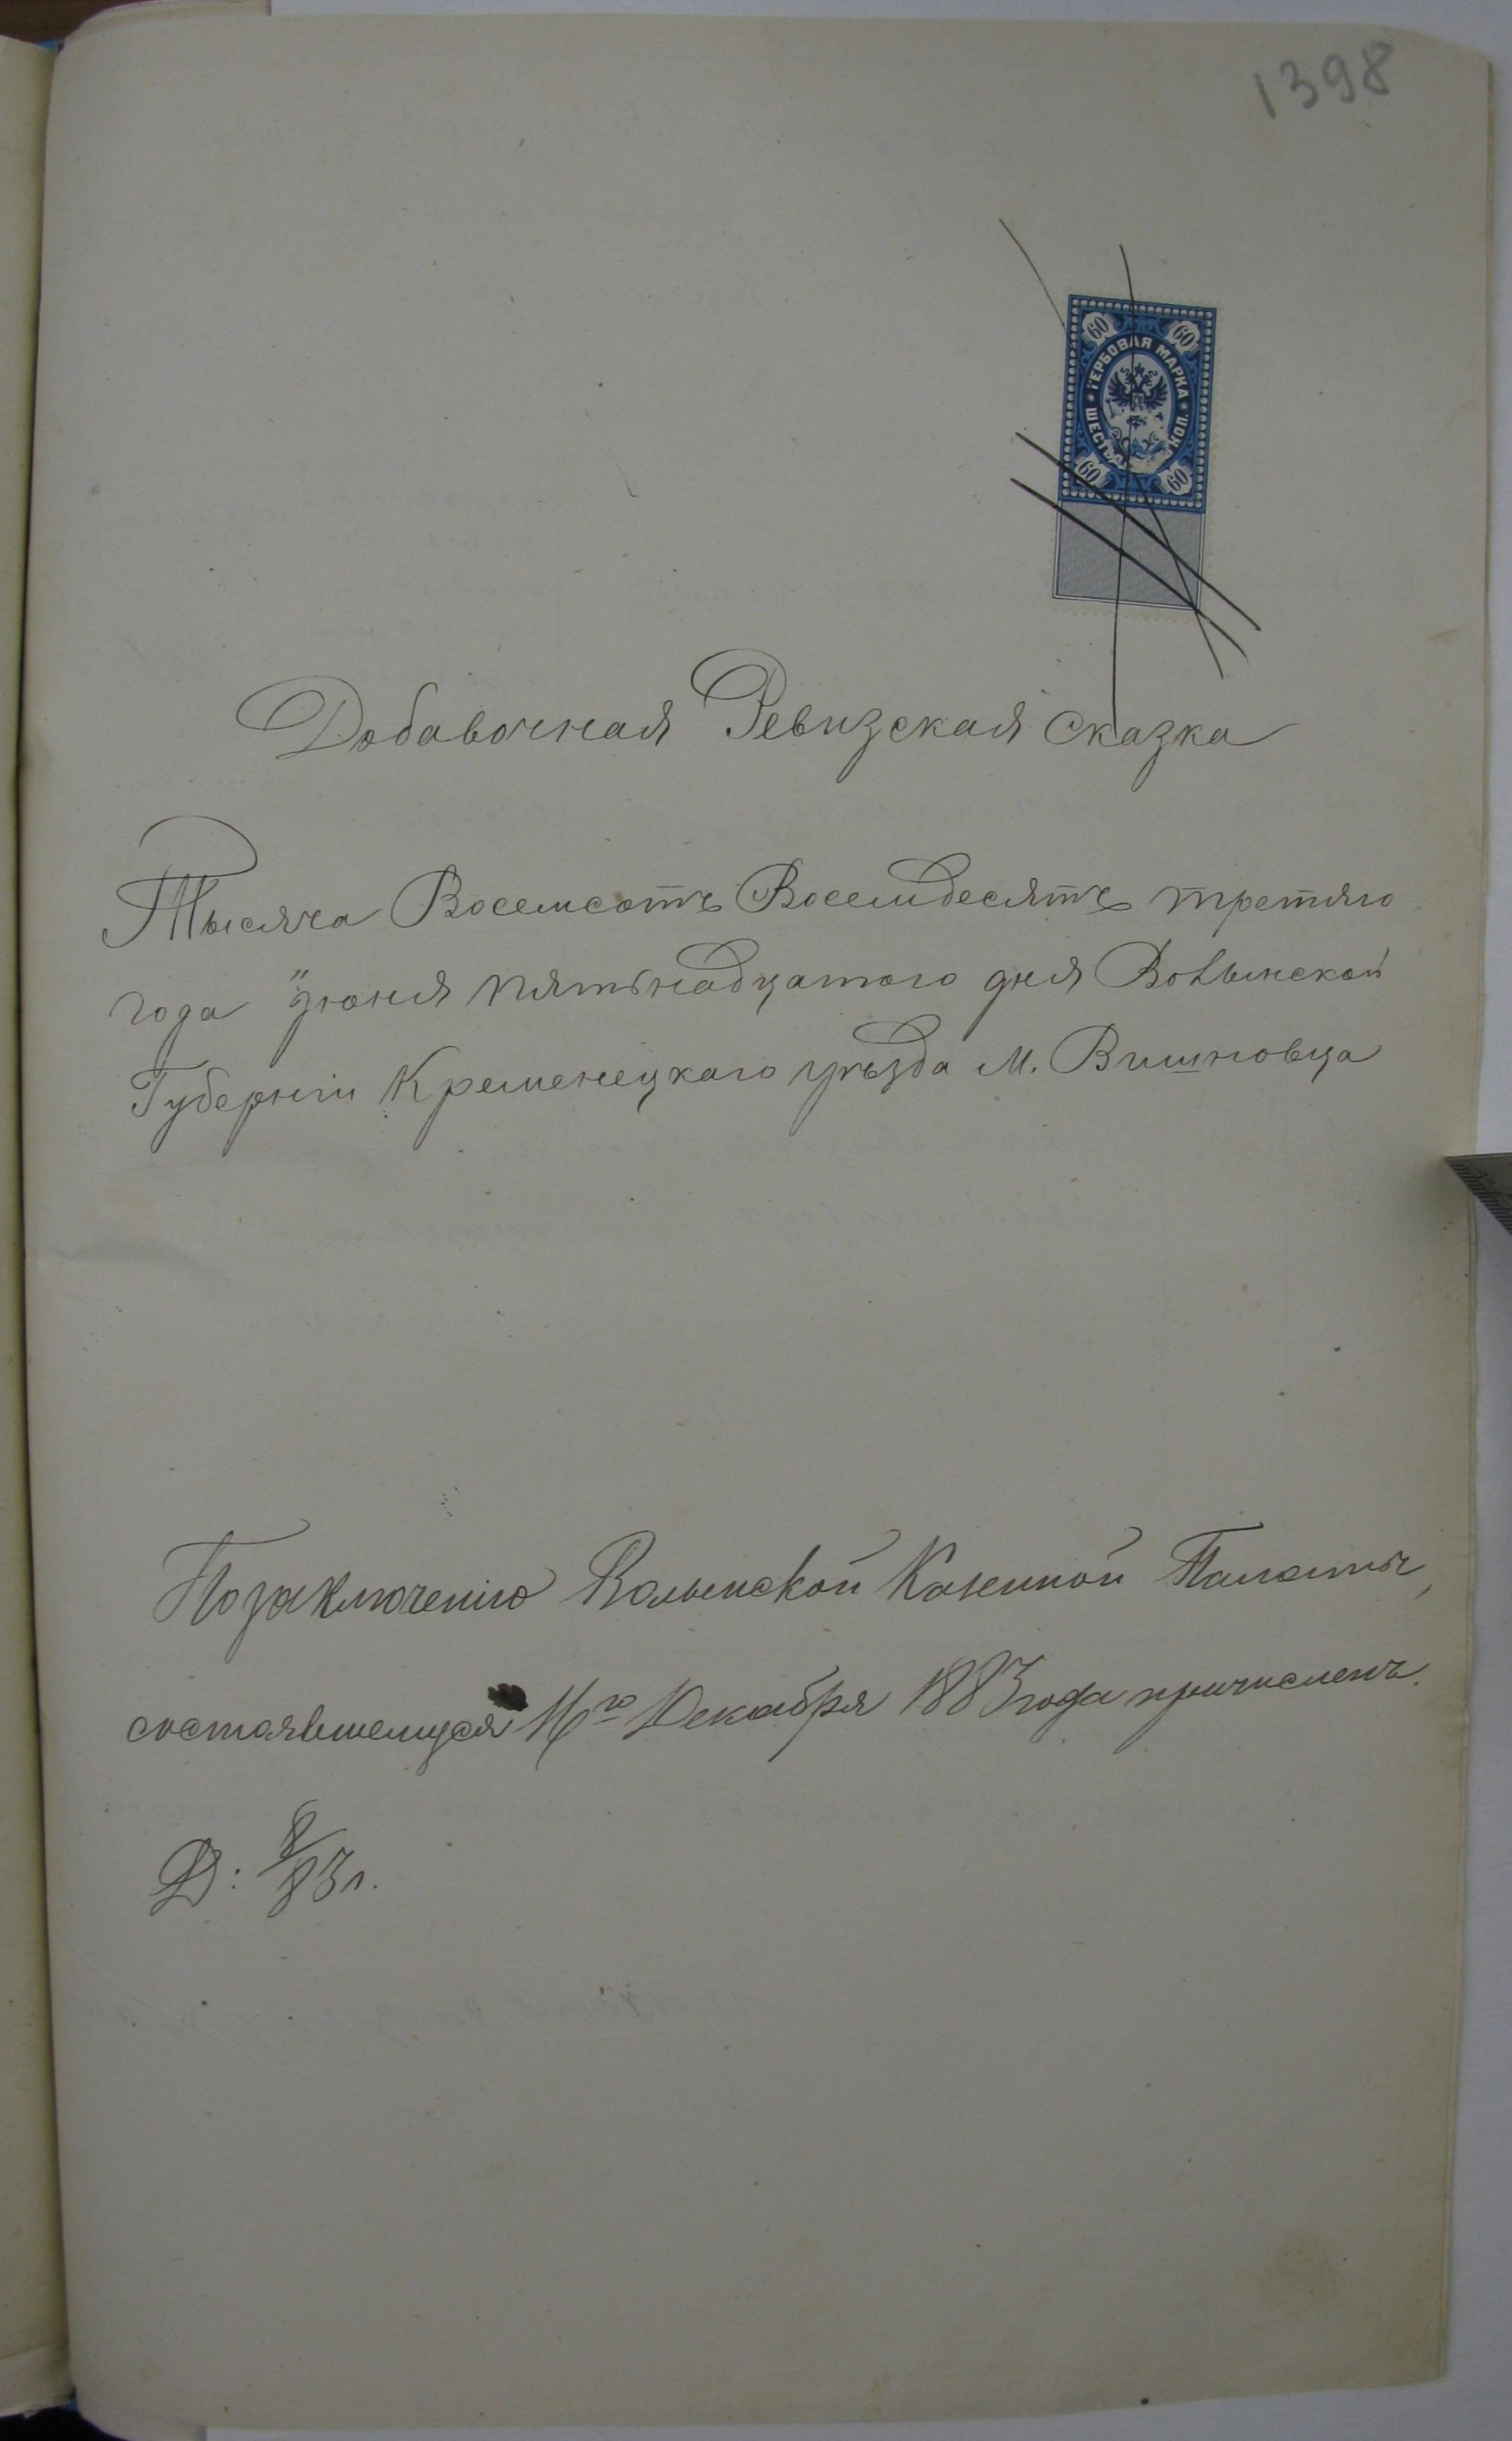 1398
60 60
ГЕРБОВАЯ МАРКА
КОП.
60 60
Добавочная Ревизская сказка
Тысяча Восемсотъ Восемдесятъ третяго
года Iюня пятьнадцатого дня Волынской
Губернiи Кременецкаго уѣзда М. Вишновца
По заключенiю Волынской Казенной Палаты,
состоявшемуся го Декабря 1883 года причисленъ.
Д: 8/83 г.